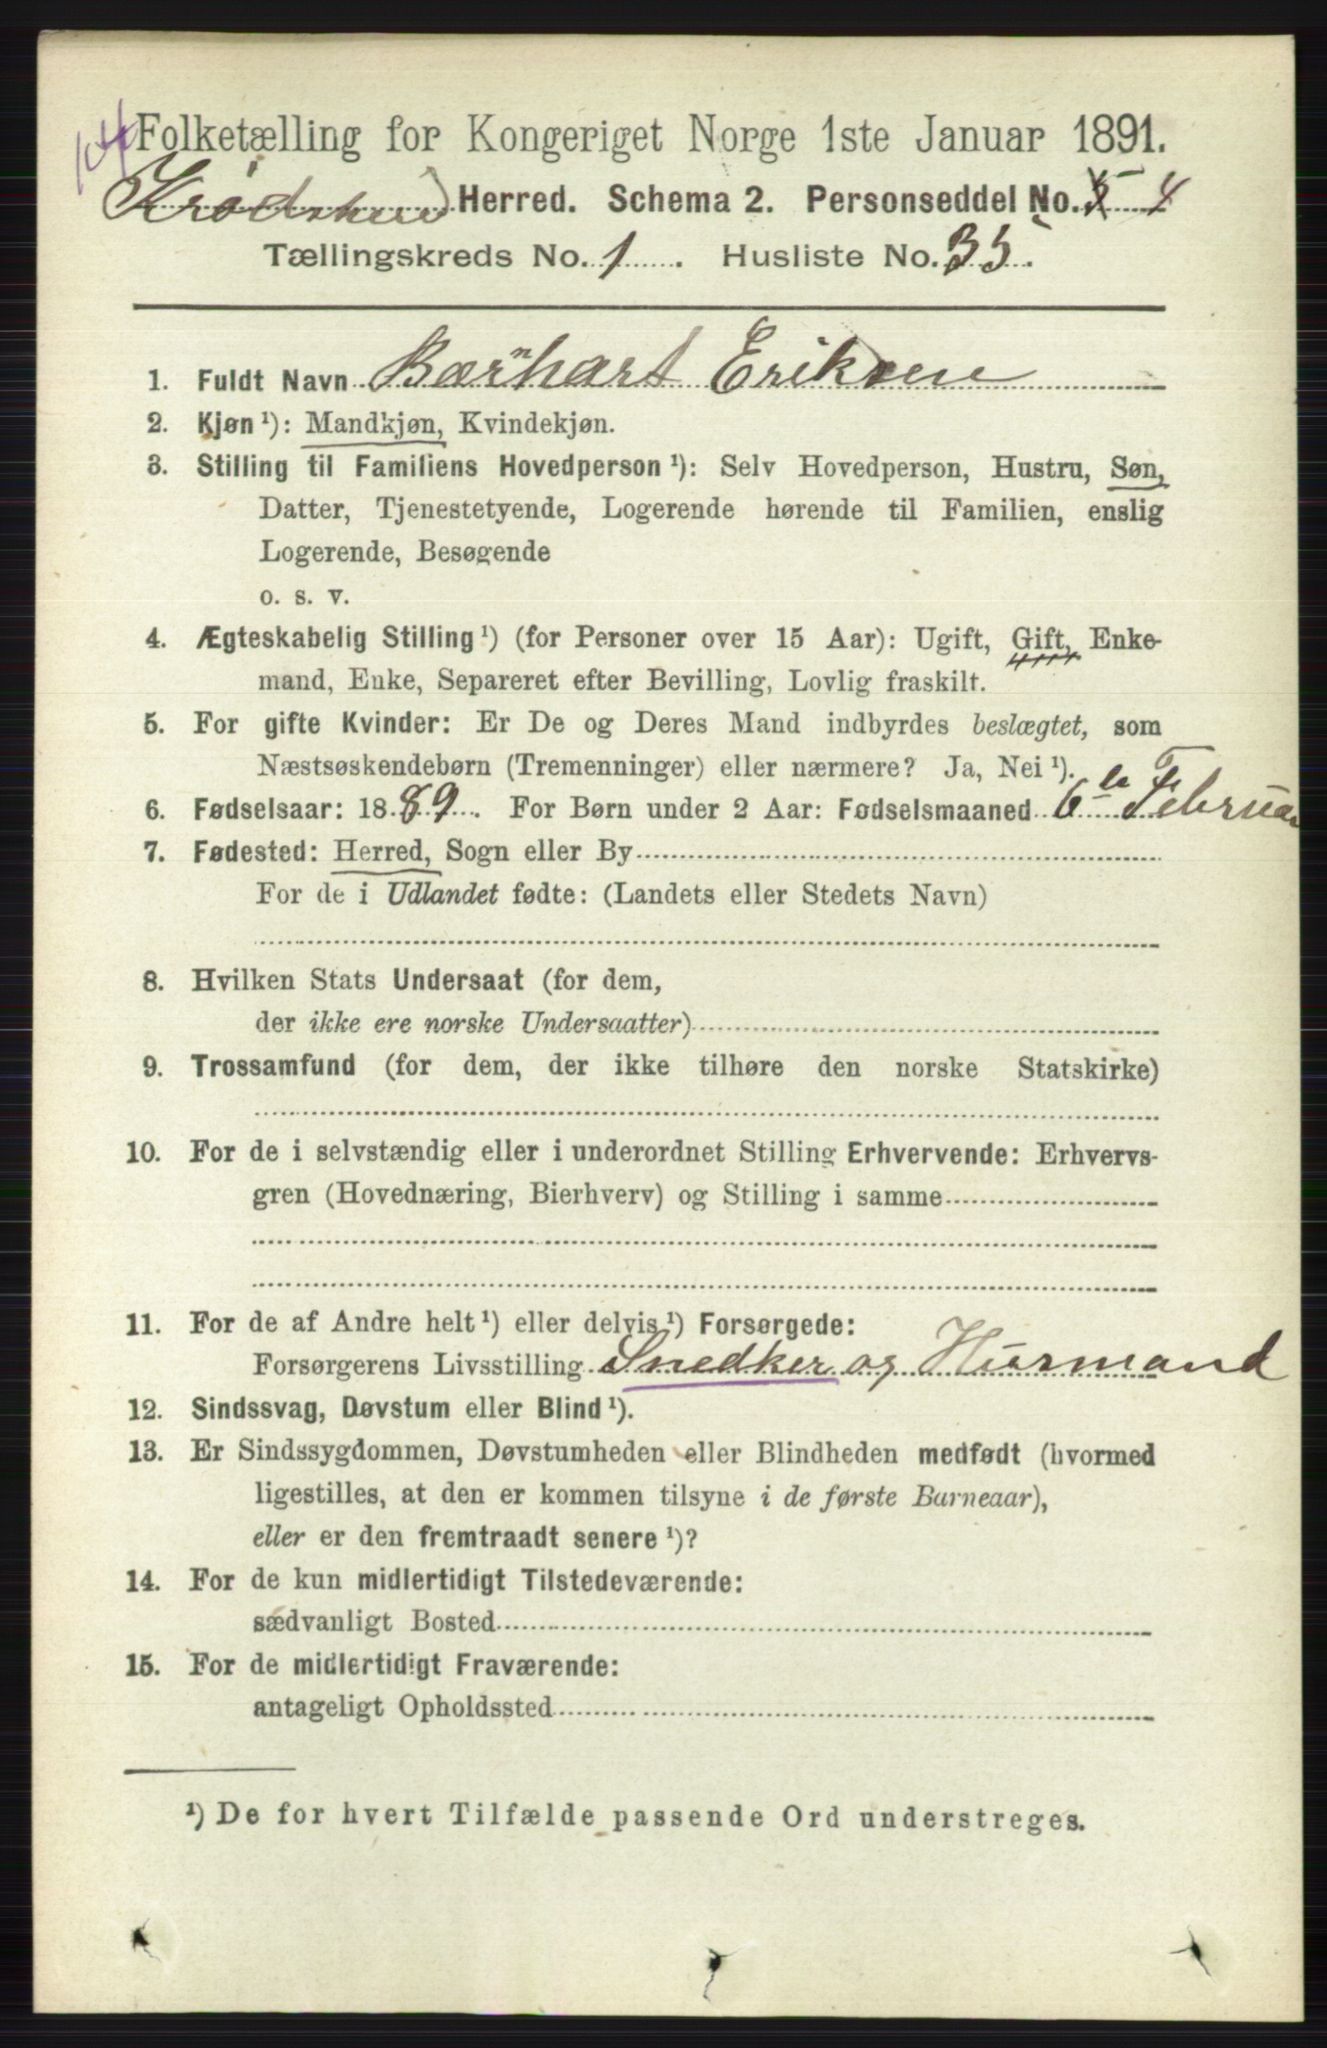 104
Folketælling for Kongeriget Norge 1ste Januar 1891.
Krødshud Herred. Schema 2. Personseddel No. 4
Tællingskreds No. 1. Husliste No. 35.
1. Fuldt Navn Bærnhart Eriksen
2. Kjøn ¹): Mandkjøn, Kvindekjøn.
3. Stilling til Familiens Hovedperson ¹): Selv Hovedperson, Hustru, Søn,
Datter, Tjenestetyende, Logerende hørende til Familien, enslig
Logerende, Besøgende
o. s. v.
4. Ægteskabelig Stilling ¹) (for Personer over 15 Aar): Ugift, Gift, Enke-
mand, Enke, Separeret efter Bevilling, Lovlig fraskilt.
5. For gifte Kvinder: Er De og Deres Mand indbyrdes beslægtet, som
Næstsøskendebørn (Tremenninger) eller nærmere? Ja, Nei ¹).
6. Fødselsaar: 1889. For Børn under 2 Aar: Fødselsmaaned 6te Februar
7. Fødested: Herred, Sogn eller By
For de i Udlandet fødte: (Landets eller Stedets Navn)
8. Hvilken Stats Undersaat (for dem,
der ikke ere norske Undersaatter)
9. Trossamfund (for dem, der ikke tilhøre den norske Statskirke)
10. For de i selvstændig eller i underordnet Stilling Erhvervende: Erhvervs-
gren (Hovednæring, Bierhverv) og Stilling i samme
11. For de af Andre helt ¹) eller delvis ¹) Forsørgede:
Forsørgerens Livsstilling Snedker og Husmand
12. Sindssvag, Døvstum eller Blind ¹).
13. Er Sindssygdommen, Døvstumheden eller Blindheden medfødt (hvormed
ligestilles, at den er kommen tilsyne i de første Barneaar),
eller er den fremtraadt senere ¹)?
14. For de kun midlertidigt Tilstedeværende:
sædvanligt Bosted
15. For de midlertidigt Fraværende:
antageligt Opholdssted
¹) De for hvert Tilfælde passende Ord understreges.